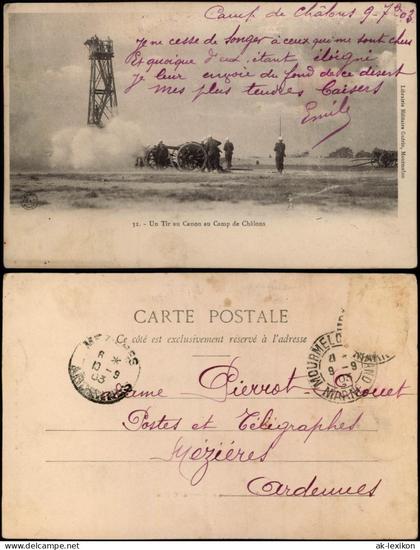 Camp de Châlons 9-7bre 03
Je ne cesse de songer à ceux qui me sont chers
Et quoique d'eux, étant éloigné
Je leur envoie du fond de ce désert
Mes plus tendres baisers
Emile
Librairie Militaire Guérin, Mourmelon
32. - Un Tir au Canon au Camp de Châlons
CARTE POSTALE
Ce côté est exclusivement réservé à l'adresse
MÉZIÈRES
8
10-9
03
ARDENNES
MOURMELON-LE-GRAND
9-9
03
MARNE
Madame Pierrot
Postes et Télégraphes
Mézières
Ardennes
ak-lexikon